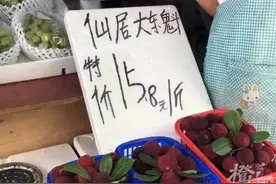 仙居大东魁
特价 15.8元1斤
橙